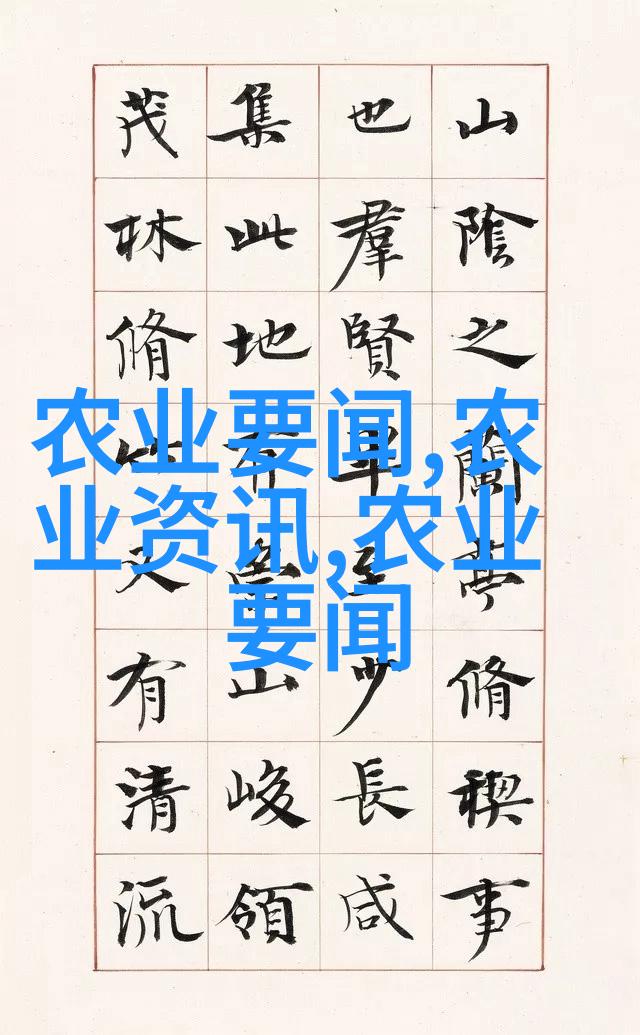 山陰之蘭亭脩稧事
也羣賢畢至少長咸
集此地有崇山峻領
茂林脩竹又有清流
农业要闻,农
业资讯,农业
要闻